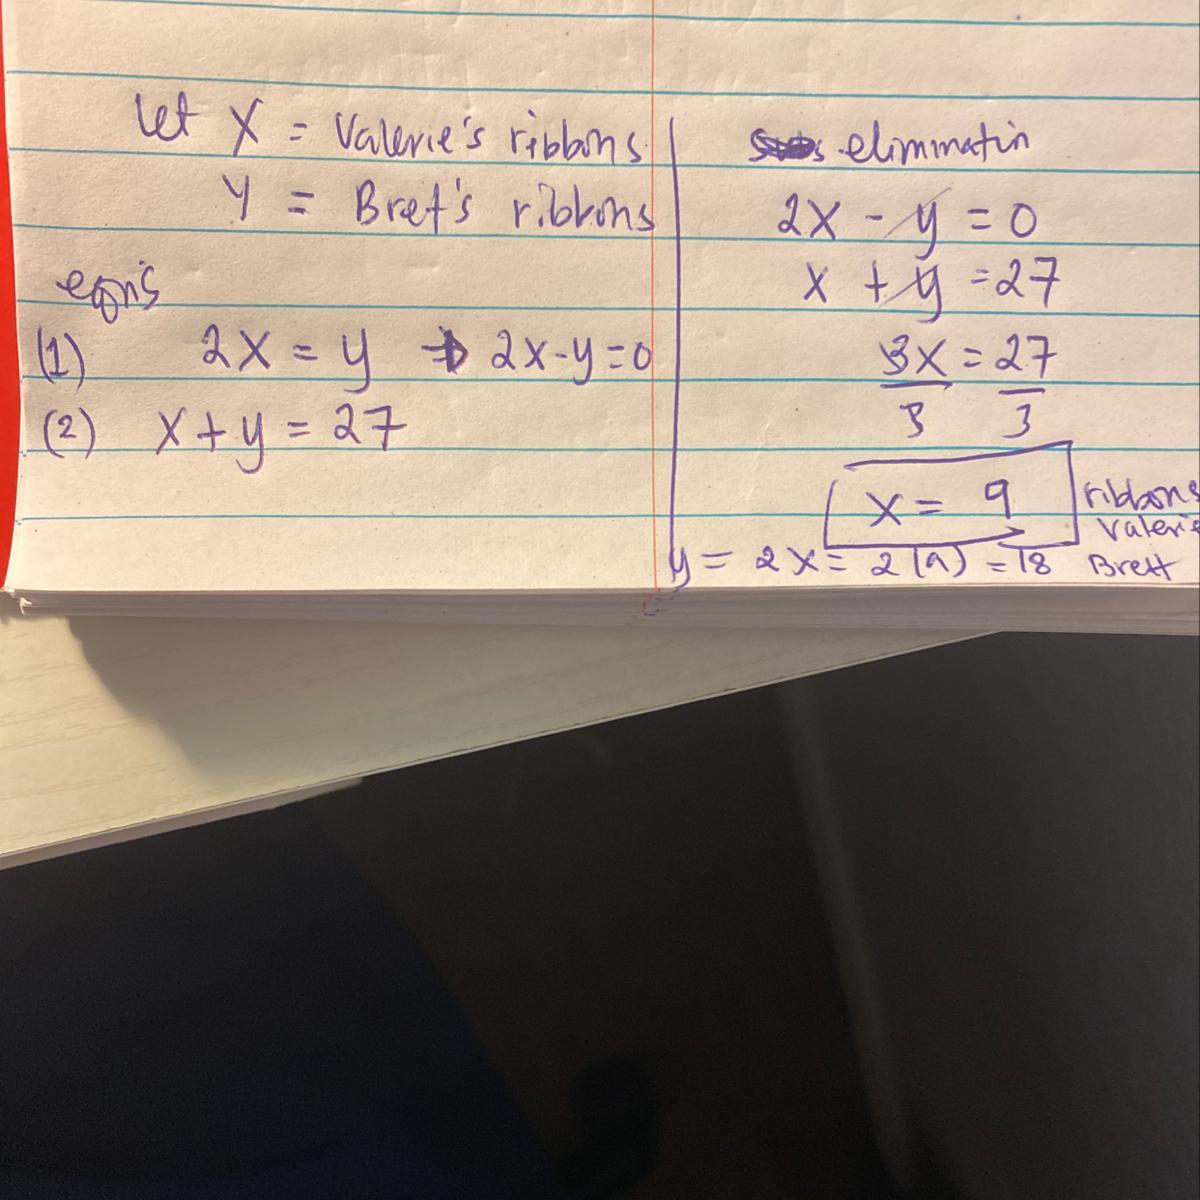 let X = Valerie's ribbons
Y = Bret's ribbons
eqn's
(1) 2X = y → 2x-y=0
(2) X + y = 27
eliminatin
2X - y = 0
X + y = 27
3X = 27
3 3
X = 9 ribbons Valerie
y = 2X = 2(9) = 18 Brett